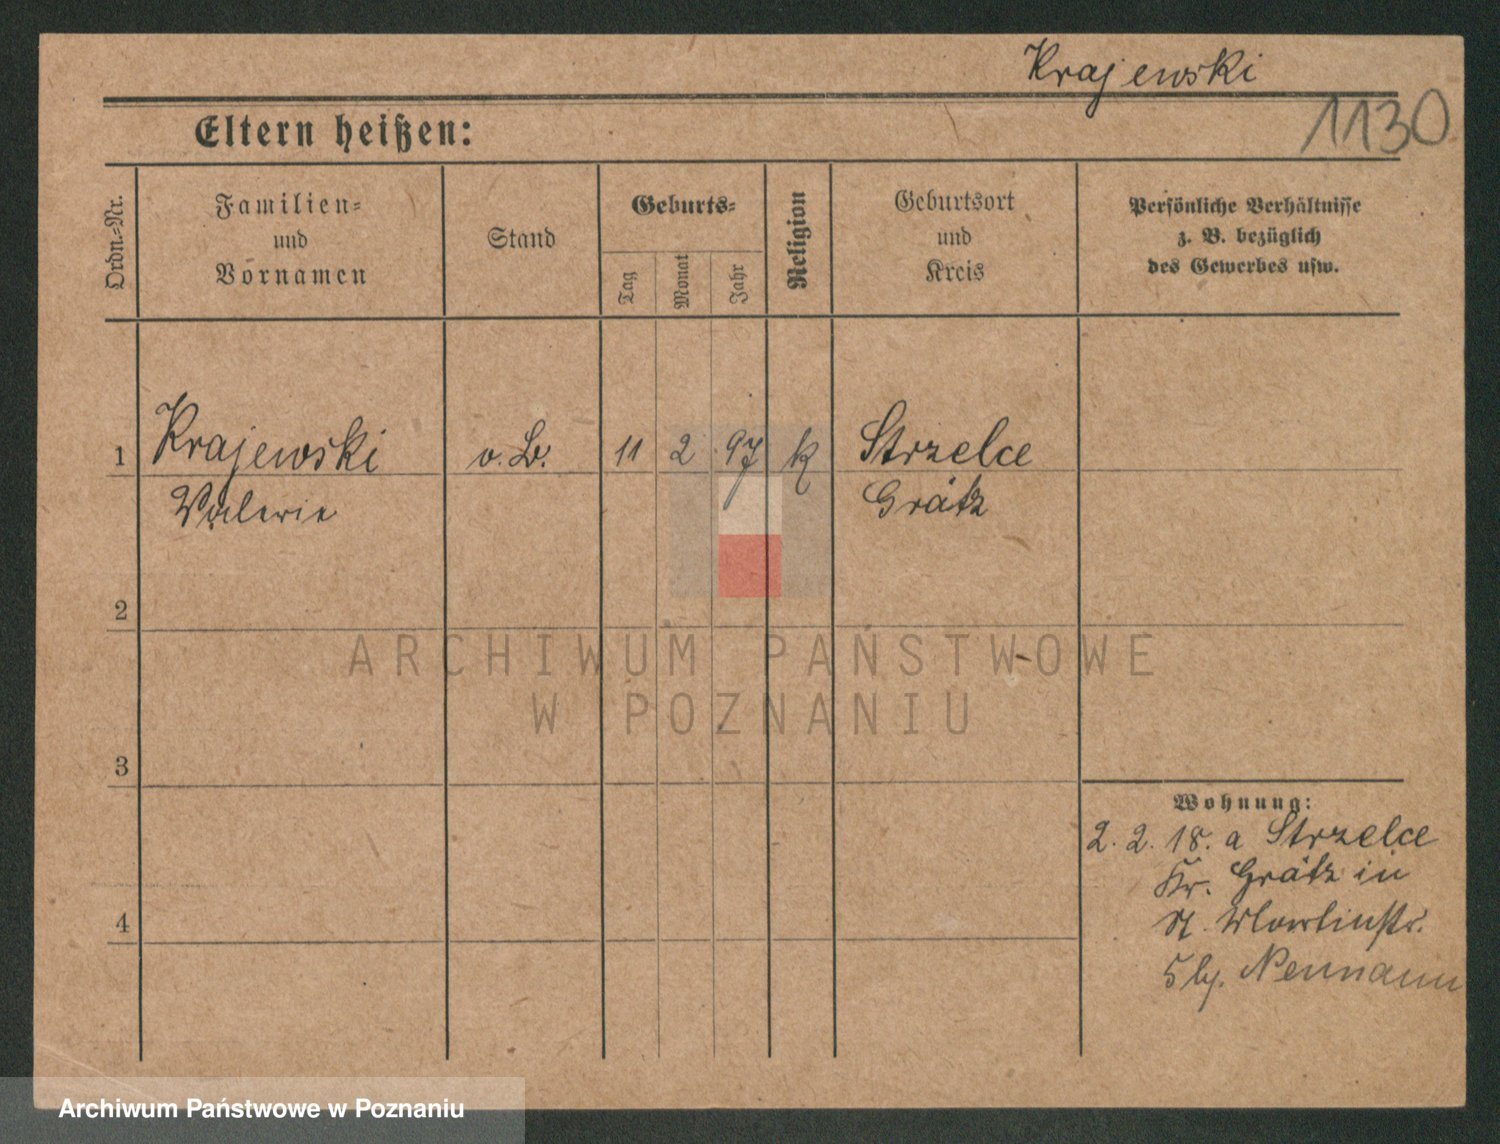 Krajewski
1130
Eltern heißen:
Ordn.-Nr.
Familien-
und
Vornamen
Stand
Geburts-
Tag
Monat
Jahr
Religion
Geburtsort
und
Kreis
Persönliche Verhältnisse
z. B. bezüglich
des Gewerbes usw.
1 Krajewski o. B. 11 2 97 k Strzelce
Valerie Grätz
2
ARCHIWUM PAŃSTWOWE
W POZNANIU
3
Wohnung:
2. 2. 18. a Strzelce
Kr. Grätz in
St. Martinstr.
4
5 Neumann
Archiwum Państwowe w Poznaniu